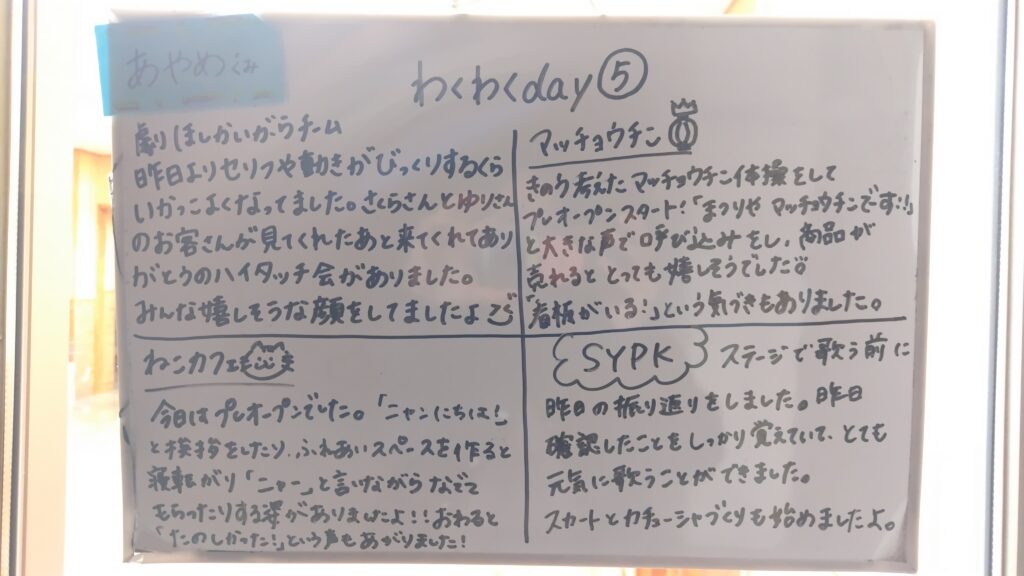 あやめぐみ
わくわくday⑤
劇 ほしかいがらチーム
昨日よりセリフや動きがびっくりするくら
いかっこよくなってました。さくらさんとゆりさん
のお客さんが見てくれたあと来てくれてあり
がとうのハイタッチ会がありました。
みんな嬉しそうな顔をしてましたよ
マッチョウチン
きのう考えたマッチョウチン体操をして
プレオープンスタート!「まつりや マッチョウチンです!」
と大きな声で呼び込みをし、商品が
売れると とっても嬉しそうでした
「看板がいる!」という気づきもありました。
ねこカフェ
今日はプレオープンでした。「ニャンにちは!」
と挨拶をしたり、ふれあいスペースを作ると
寝転がり「ニャー」と言いながら なでて
もらったりする姿がありましたよ!!おわると
「たのしかった!」という声もあがりました!
SYPK ステージで歌う前に
昨日の振り返りをしました。昨日
確認したことをしっかり覚えていて、とても
元気に歌うことができました。
スカートとカチューシャづくりも始めましたよ。